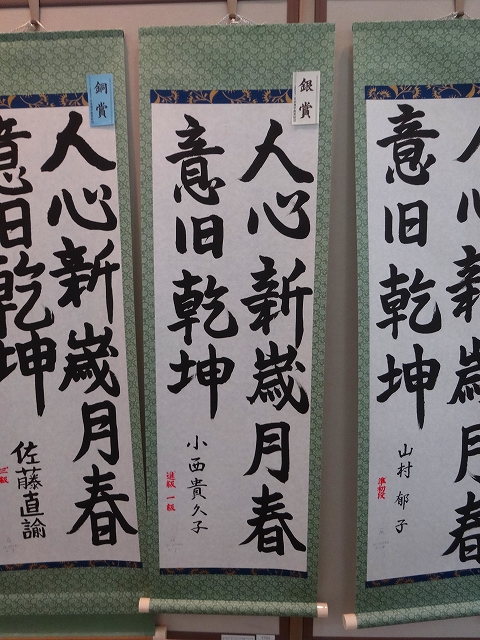 人心新歳月春
意旧乾坤
山村郁子
準初段
銀賞
人心新歳月春
意旧乾坤
小西貴久子
進級 一級
銅賞
人心新歳月春
意旧乾坤
佐藤直諭
三級